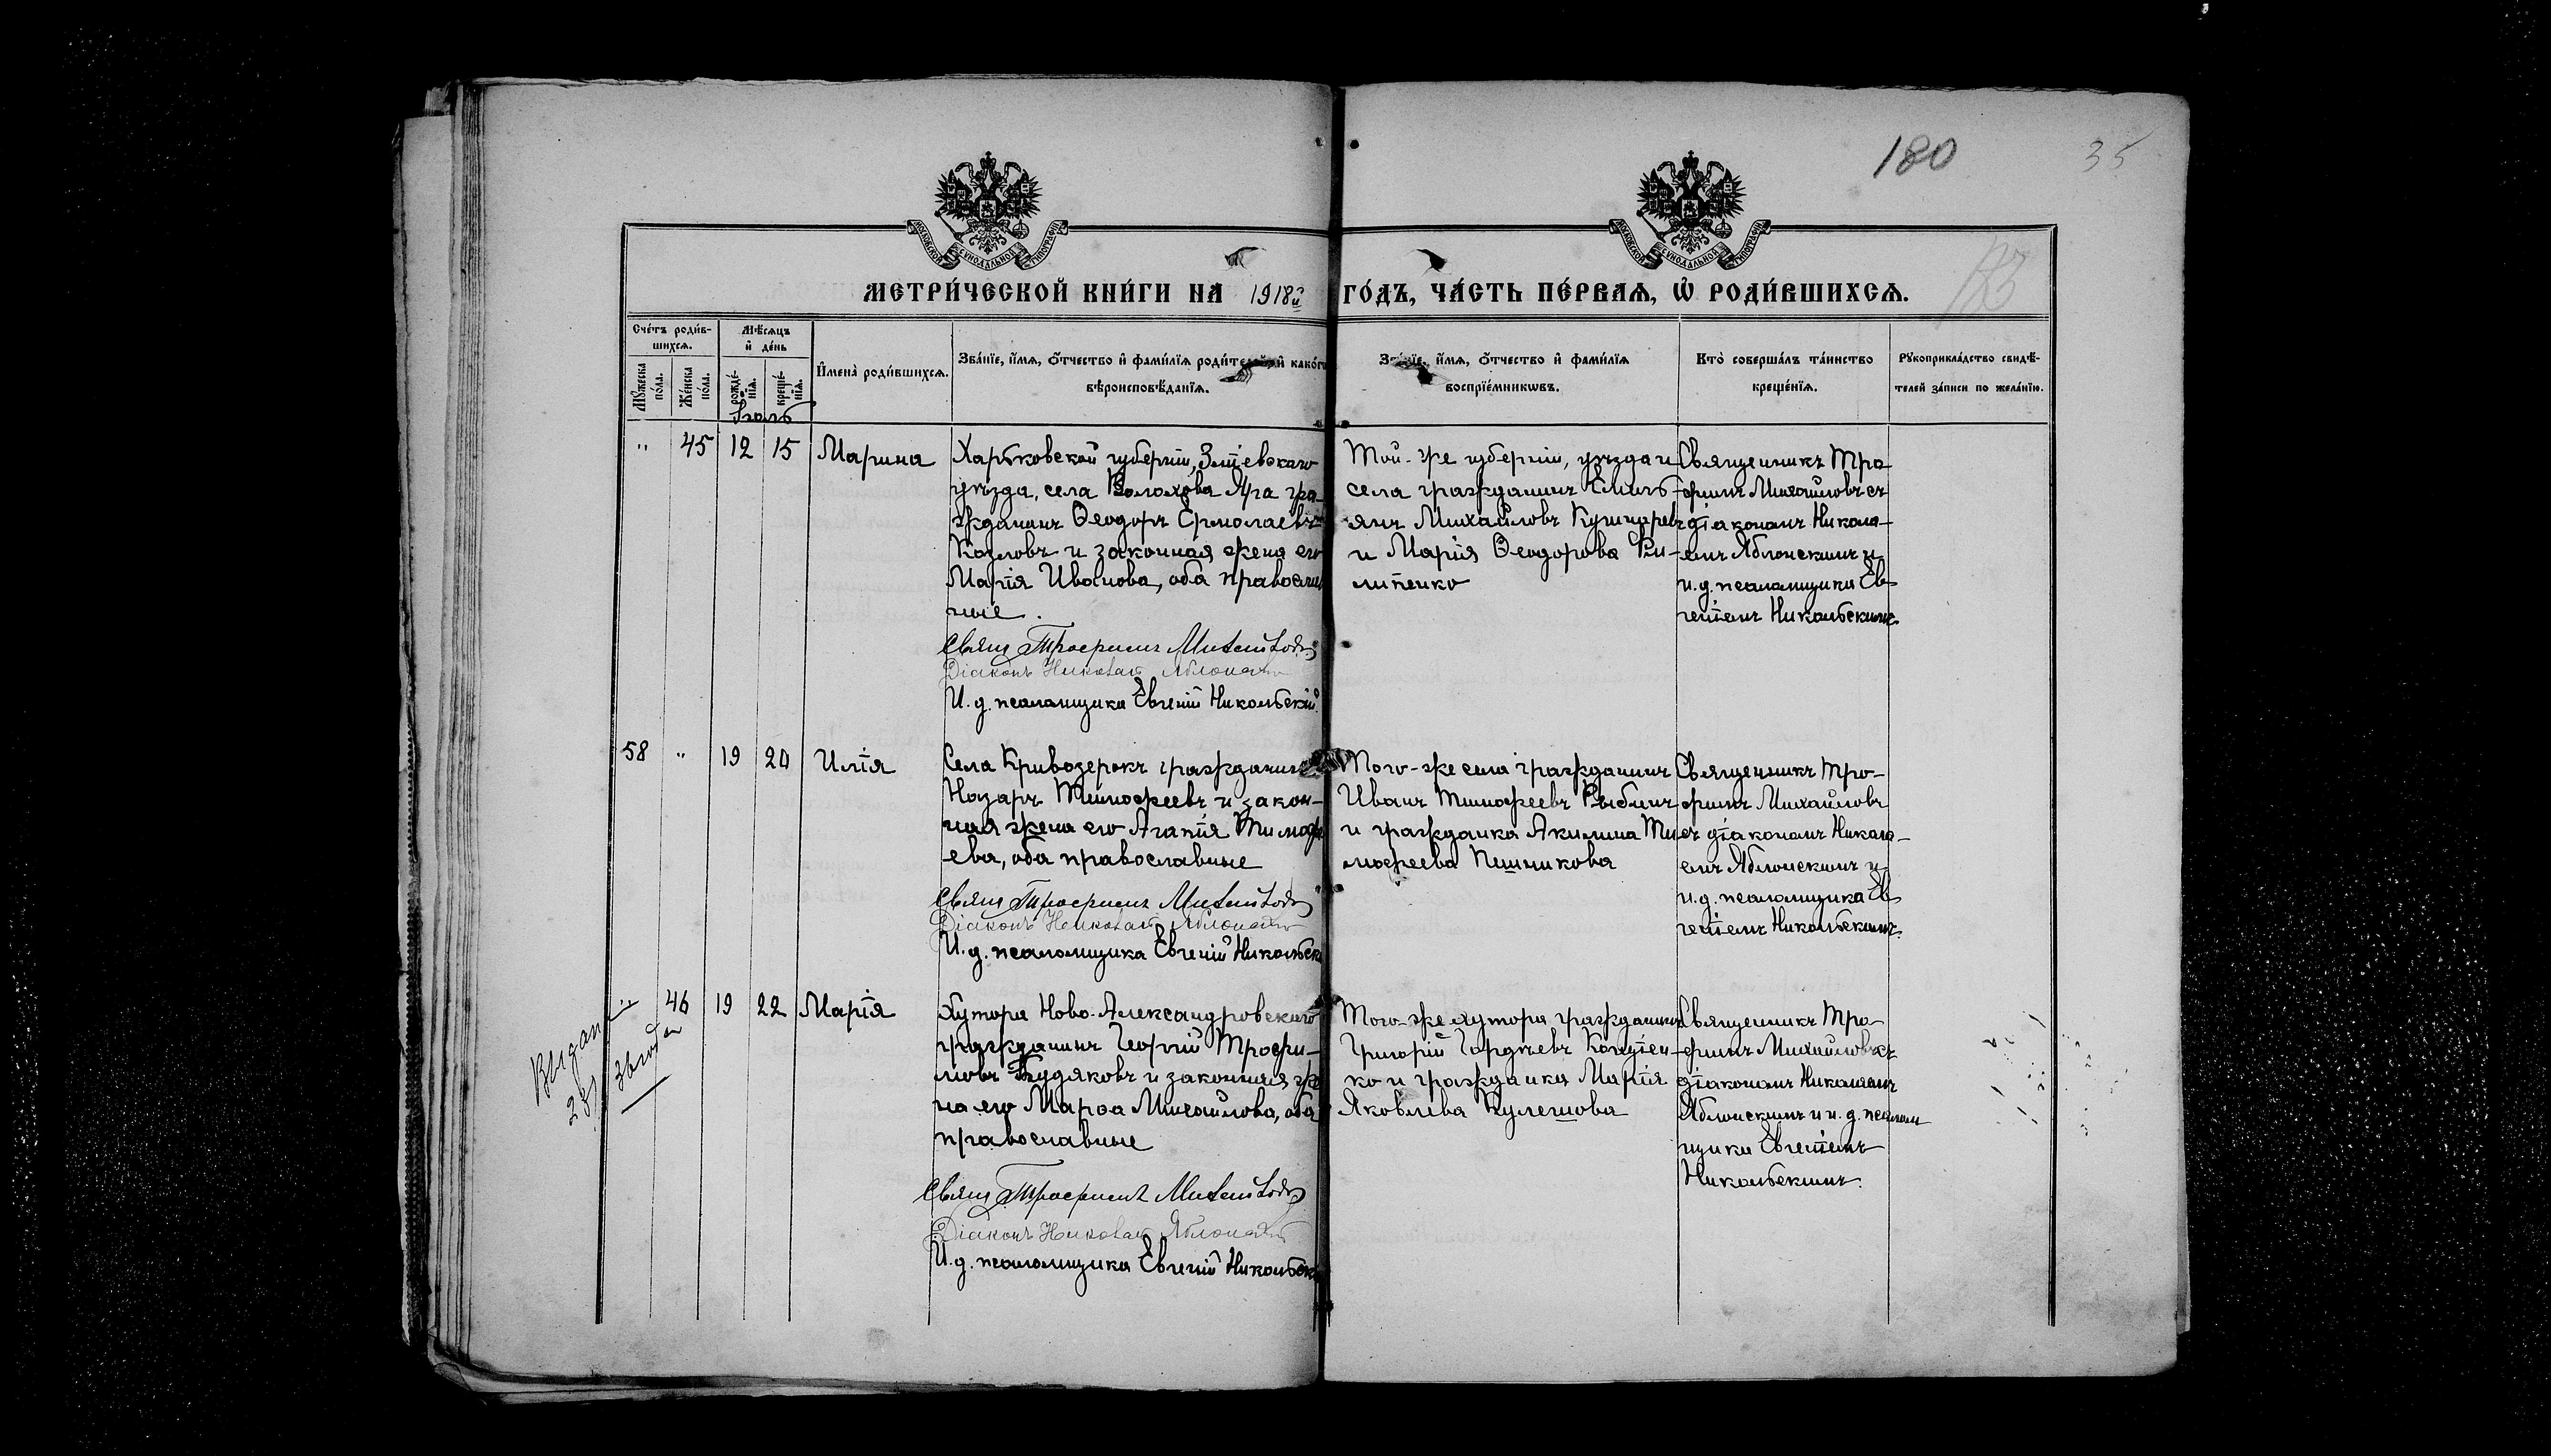 180
35
МОСКОВСКОЙ СѴНОДАЛЬНОЙ ТИПОГРАФІИ
МОСКОВСКОЙ СѴНОДАЛЬНОЙ ТИПОГРАФІИ
МЕТРИ́ЧЕСКОЙ КНИ́ГИ НА 1918й ГО́ДЪ, ЧА́СТЬ ПЕ́РВАѦ, Ѡ РОДИ́ВШИХСѦ.
Сче́тъ роди́в-
шихсѧ.
Мѣ́сѧцъ
и҆ де́нь
Мꙋ́жеска
по́ла.
Же́нска
по́ла.
рожде́-
нїѧ.
креще́-
нїѧ.
И҆мена̀ роди́вшихсѧ.
Зва́нїе, и҆́мѧ, ѻ҆́тчество и҆ фами́лїѧ роди́телей и҆ како́гѡ
вѣроисповѣ́данїѧ.
Зва́нїе, и҆́мѧ, ѻ҆́тчество и҆ фами́лїѧ
воспрїе́мникѡвъ.
Кто̀ соверша́лъ та́инство
креще́нїѧ.
Рꙋкоприкла́дство свидѣ́-
телей за́писи по жела́нїю.
Іюль
" 45 12 15 Марина
Харьковской губерніи, Зміевскаго
уѣзда, села Волохова Яра гра-
жданинъ Ѳеодоръ Ермолаевъ
Козловъ и законная жена его
Марія Иванова, оба православ
ные.
Свящ Трофимъ Михайловъ
Діаконъ Николай Яблонскій
И. д. псаломщика Евгеній Никольскій
Той-же губерніи, уѣзда и
села гражданинъ Емель-
янъ Михайловъ Кушнаревъ
и Марія Ѳеодорова Фи-
липенко
Священникъ Тро-
фимъ Михайловъ съ
діакономъ Никола-
емъ Яблонскимъ и
и. д. псаломщика Ев-
геніемъ Никольскимъ.
58 " 19 20 Илія
Села Кривозерокъ гражданинъ
Назаръ Тимофеевъ и закон-
ная жена его Агапія Тимофе
ева, оба православные
Свящ Трофимъ Михайловъ
Діаконъ Николай Яблонскій
И. д. псаломщика Евгеній Никольскі
Того-же села гражданинъ
Иванъ Тимофеевъ Рыбинъ
и гражданка Акилина Ти
мофеева Пешникова
Священникъ Тро-
фимъ Михайловъ
съ діакономъ Никола-
емъ Яблонскимъ и
и. д. псаломщика Ев
геніемъ Никольскимъ.
" 46 19 22 Марія
Хутора Ново-Александровскаго
гражданинъ Георгій Трофи-
мовъ Будяковъ и законная же
на его Марѳа Михайлова, оба
православные
Свящ Трофимъ Михайловъ
Діаконъ Николай Яблонскій
И. д. псаломщика Евгеній Никольскі
Того-же хутора гражданинъ
Григорій Гордѣевъ
и гражданка Марія
Яковлева Кулешова
Священникъ Тро-
фимъ Михайловъ съ
діакономъ Николаемъ
Яблонскимъ и и. д. псалом
щика Евгеніемъ
Никольскимъ.